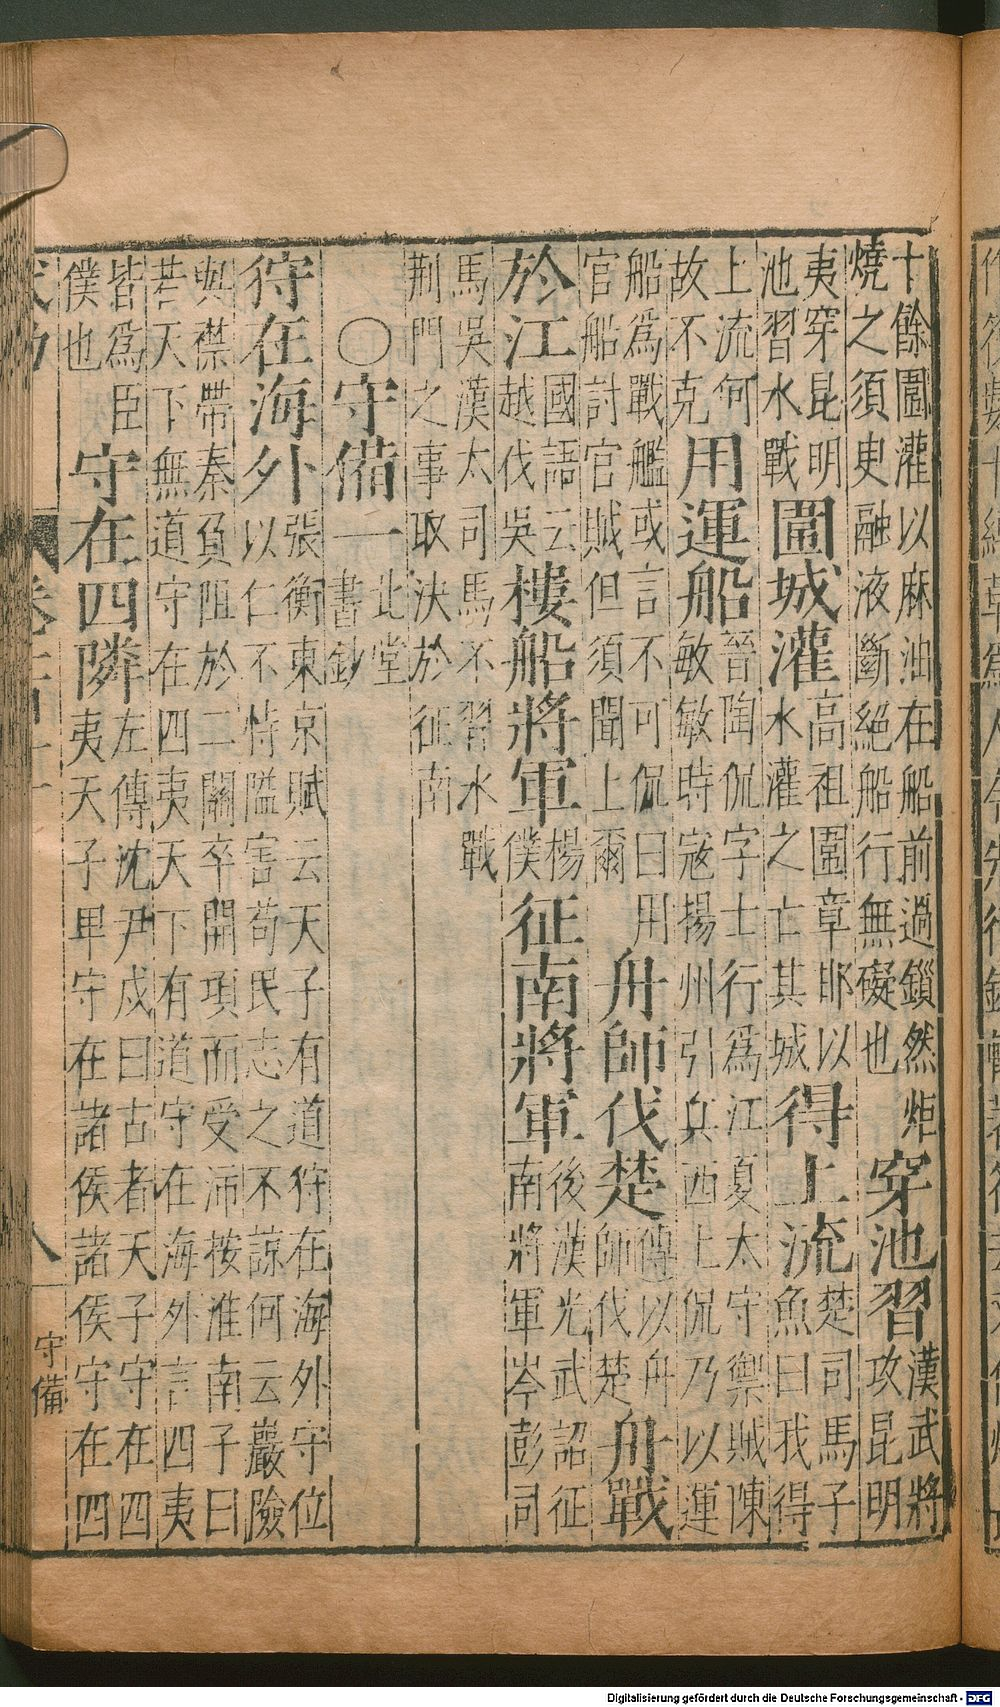 十餘圍灌以麻油在船前過鎖然炬
燒之須㬰融液斷絕船行無礙也
穿池習
漢武將
攻昆明
夷穿昆明
池習水戰
圍城灌
高祖圍章邯以
水灌之亡其城
得上流
楚司馬子
魚曰我得
上流何
故不克
用運船
晉陶侃字士行爲江夏太守禦賊陳
敏敏時寇揚州引兵西上侃乃以運
船爲戰艦或言不可侃曰用
官船討官賊但須聞上爾
舟師伐楚
傳以舟
師伐楚
舟戰
於江
國語云
越伐吳
樓船將軍
楊
僕
征南將軍
後漢光武詔征
南將軍岑彭司
馬吳漢太司馬不習水戰
荆門之事取決於征南
〇守備一
北堂
書鈔
狩在海外
張衡東京賦云天子有道狩在海外守位
以仁不恃隘害苟民志之不諒何云巖險
與襟帶秦負阻於二關卒開項而受沛按淮南子曰
若天下無道守在四夷天下有道守在海外言四夷
皆爲臣
僕也
守在四隣
左傳沈尹戍曰古者天子守在四
夷天子卑守在諸侯諸侯守在四
卷
八
守備
Digitalisierung gefördert durch die Deutsche Forschungsgemeinschaft - DFG